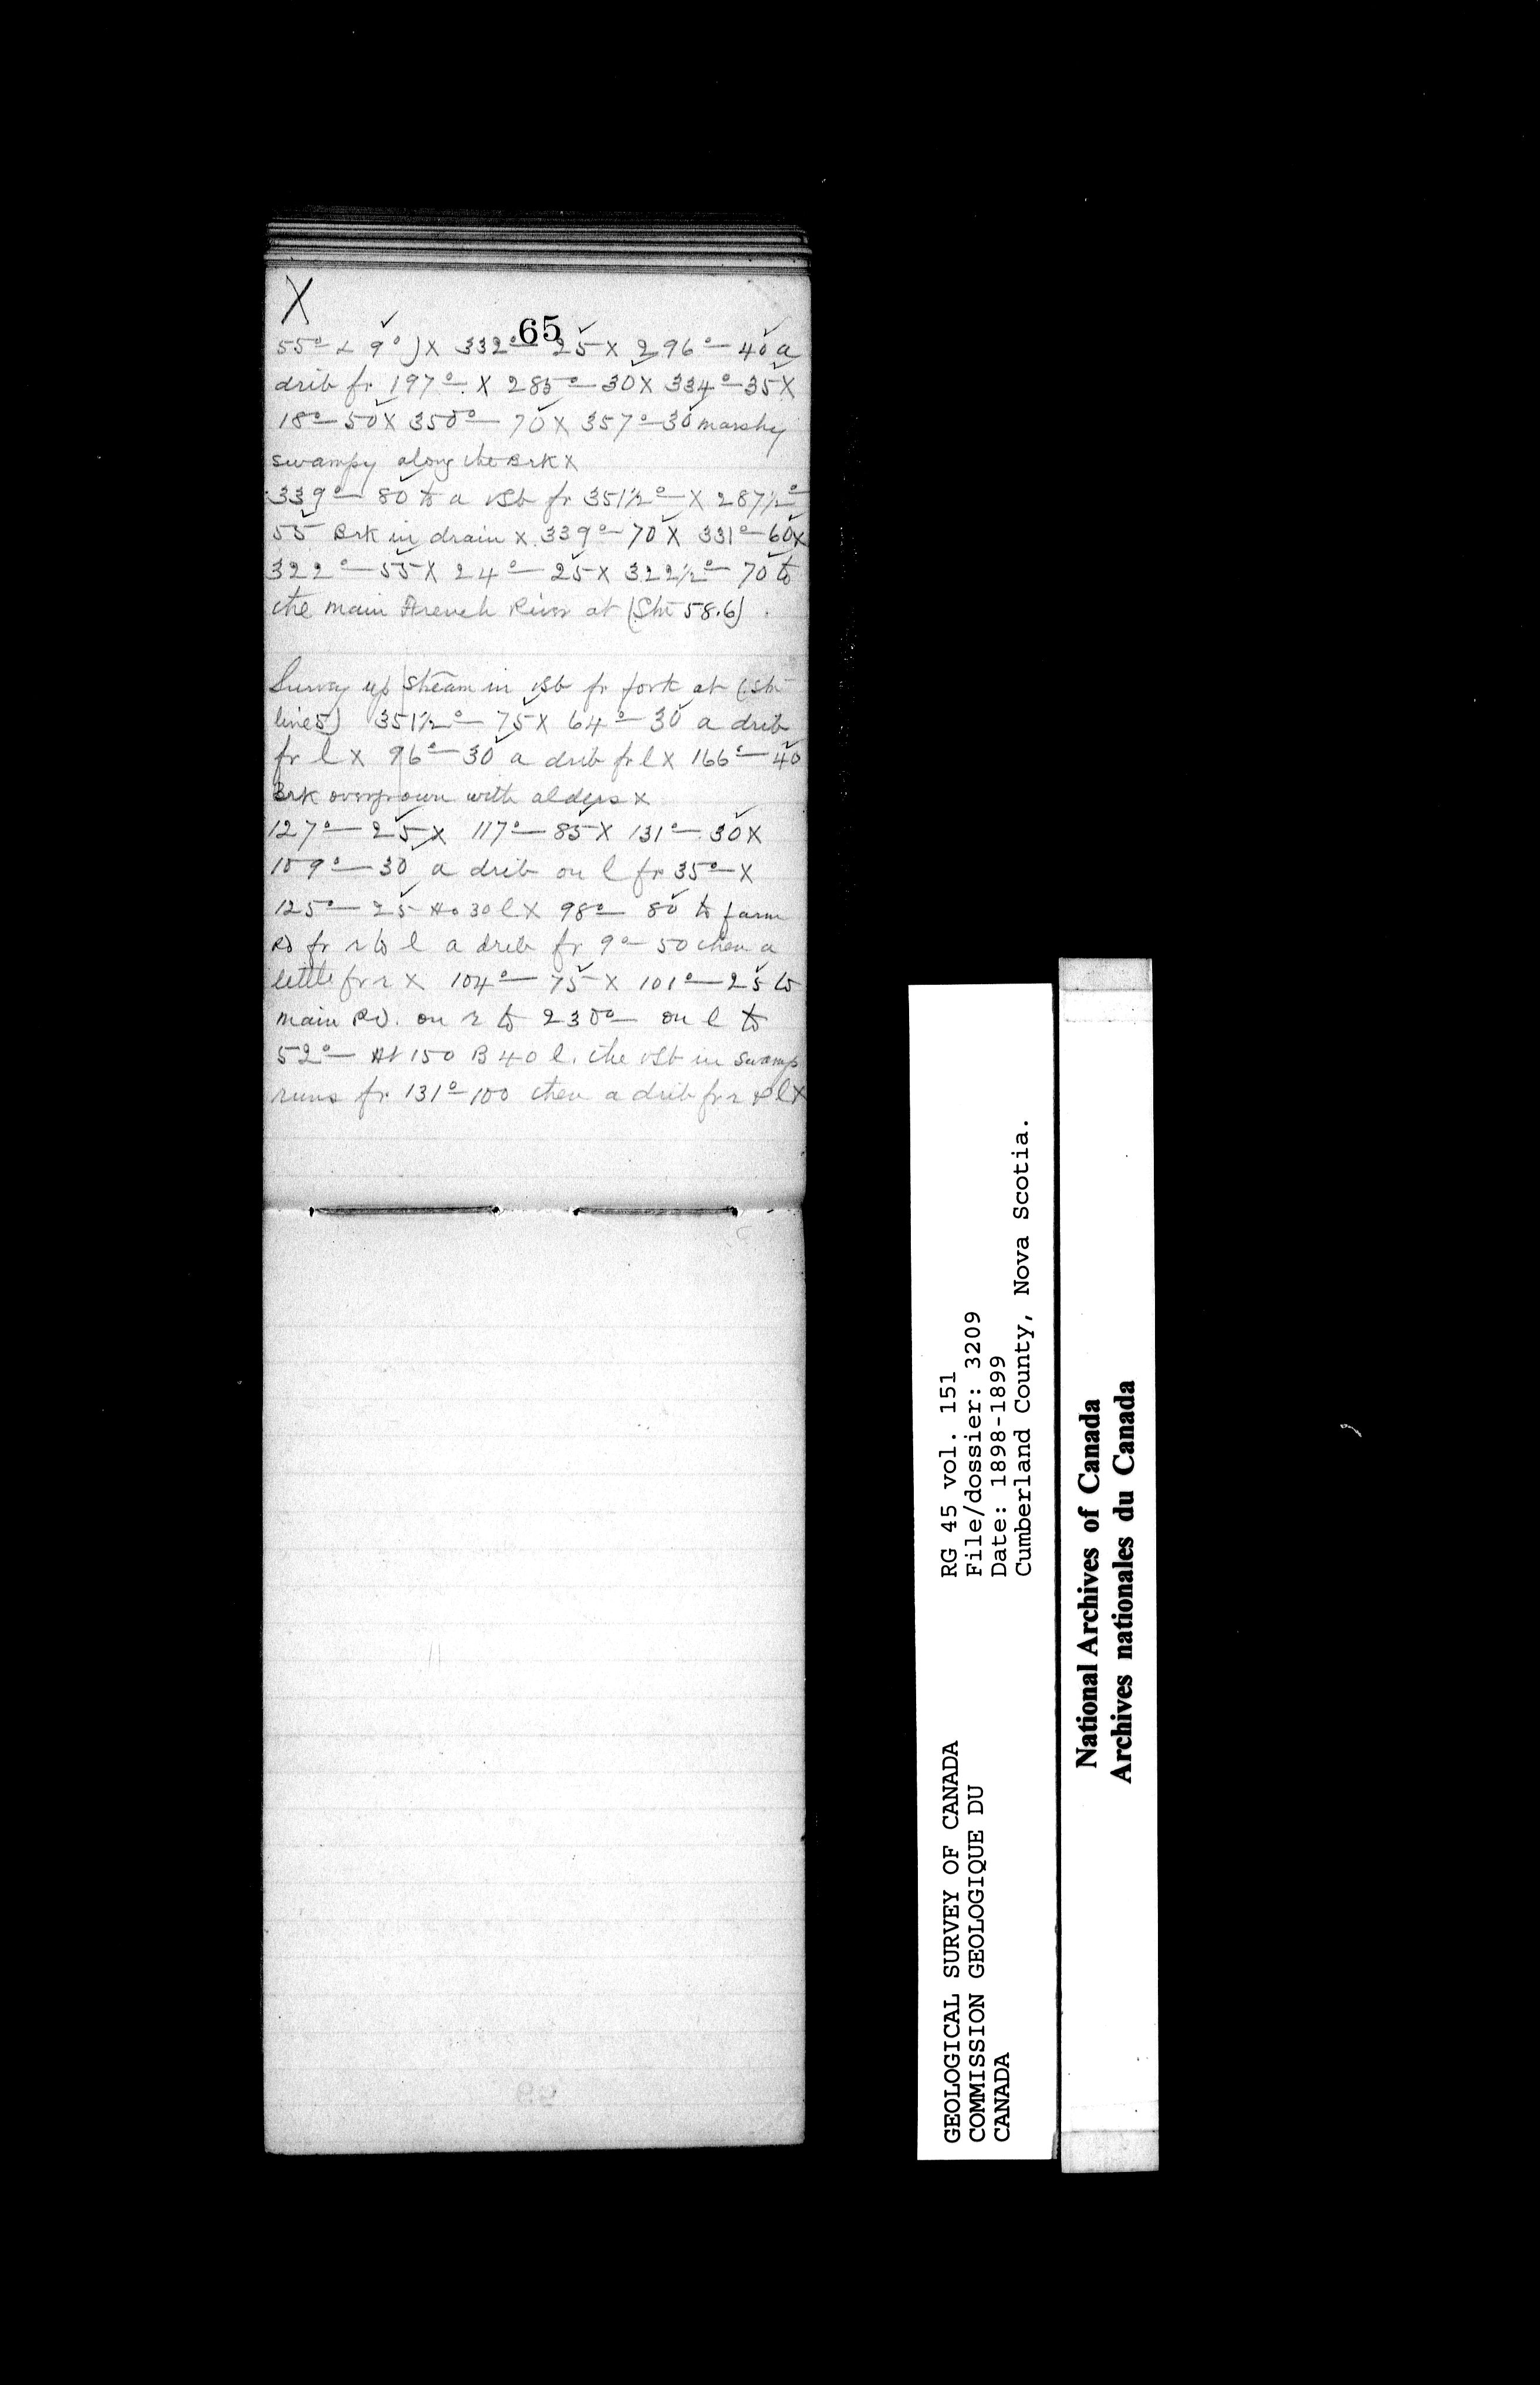 X
65
55° & 9°) X 332°—25 X 296°—40 a
drib fr 197°— X 285°—30 X 334°—35 X
18°—50 X 350°—70 X 357°—30 marshy
swampy along the Brk X
339°—80 to a vsb fr 351½°— X 287½°—
55 Brk in drain X 339°—70 X 331°—60 X
322°—55 X 24°—25 X 322½°—70 to
the main French River at (Stn 58.6).
Survey up stream in vsb fr fork at (Stn
line 5) 351½°—75 X 64°—30 a drib
fr l X 96°—30 a drib fr l X 166°—40
Brk overgrown with alders X
127°—25 X 117°—85 X 131°—30 X
109°—30 a drib on l fr 35°— X
125°—25 Ho 30 l X 98°—80 to farm
RD fr r to l a drib fr 9°—50 then a
little fr r X 104°—75 X 101°—25 to
main RD. on r to 230°— on l to
52°— At 150 B 40 l. the vsb in swamp
runs fr 131°—100 then a drib fr r & l X
RG 45 vol. 151
File/dossier: 3209
Date: 1898-1899
Cumberland County, Nova Scotia.
GEOLOGICAL SURVEY OF CANADA
COMMISSION GEOLOGIQUE DU
CANADA
National Archives of Canada
Archives nationales du Canada